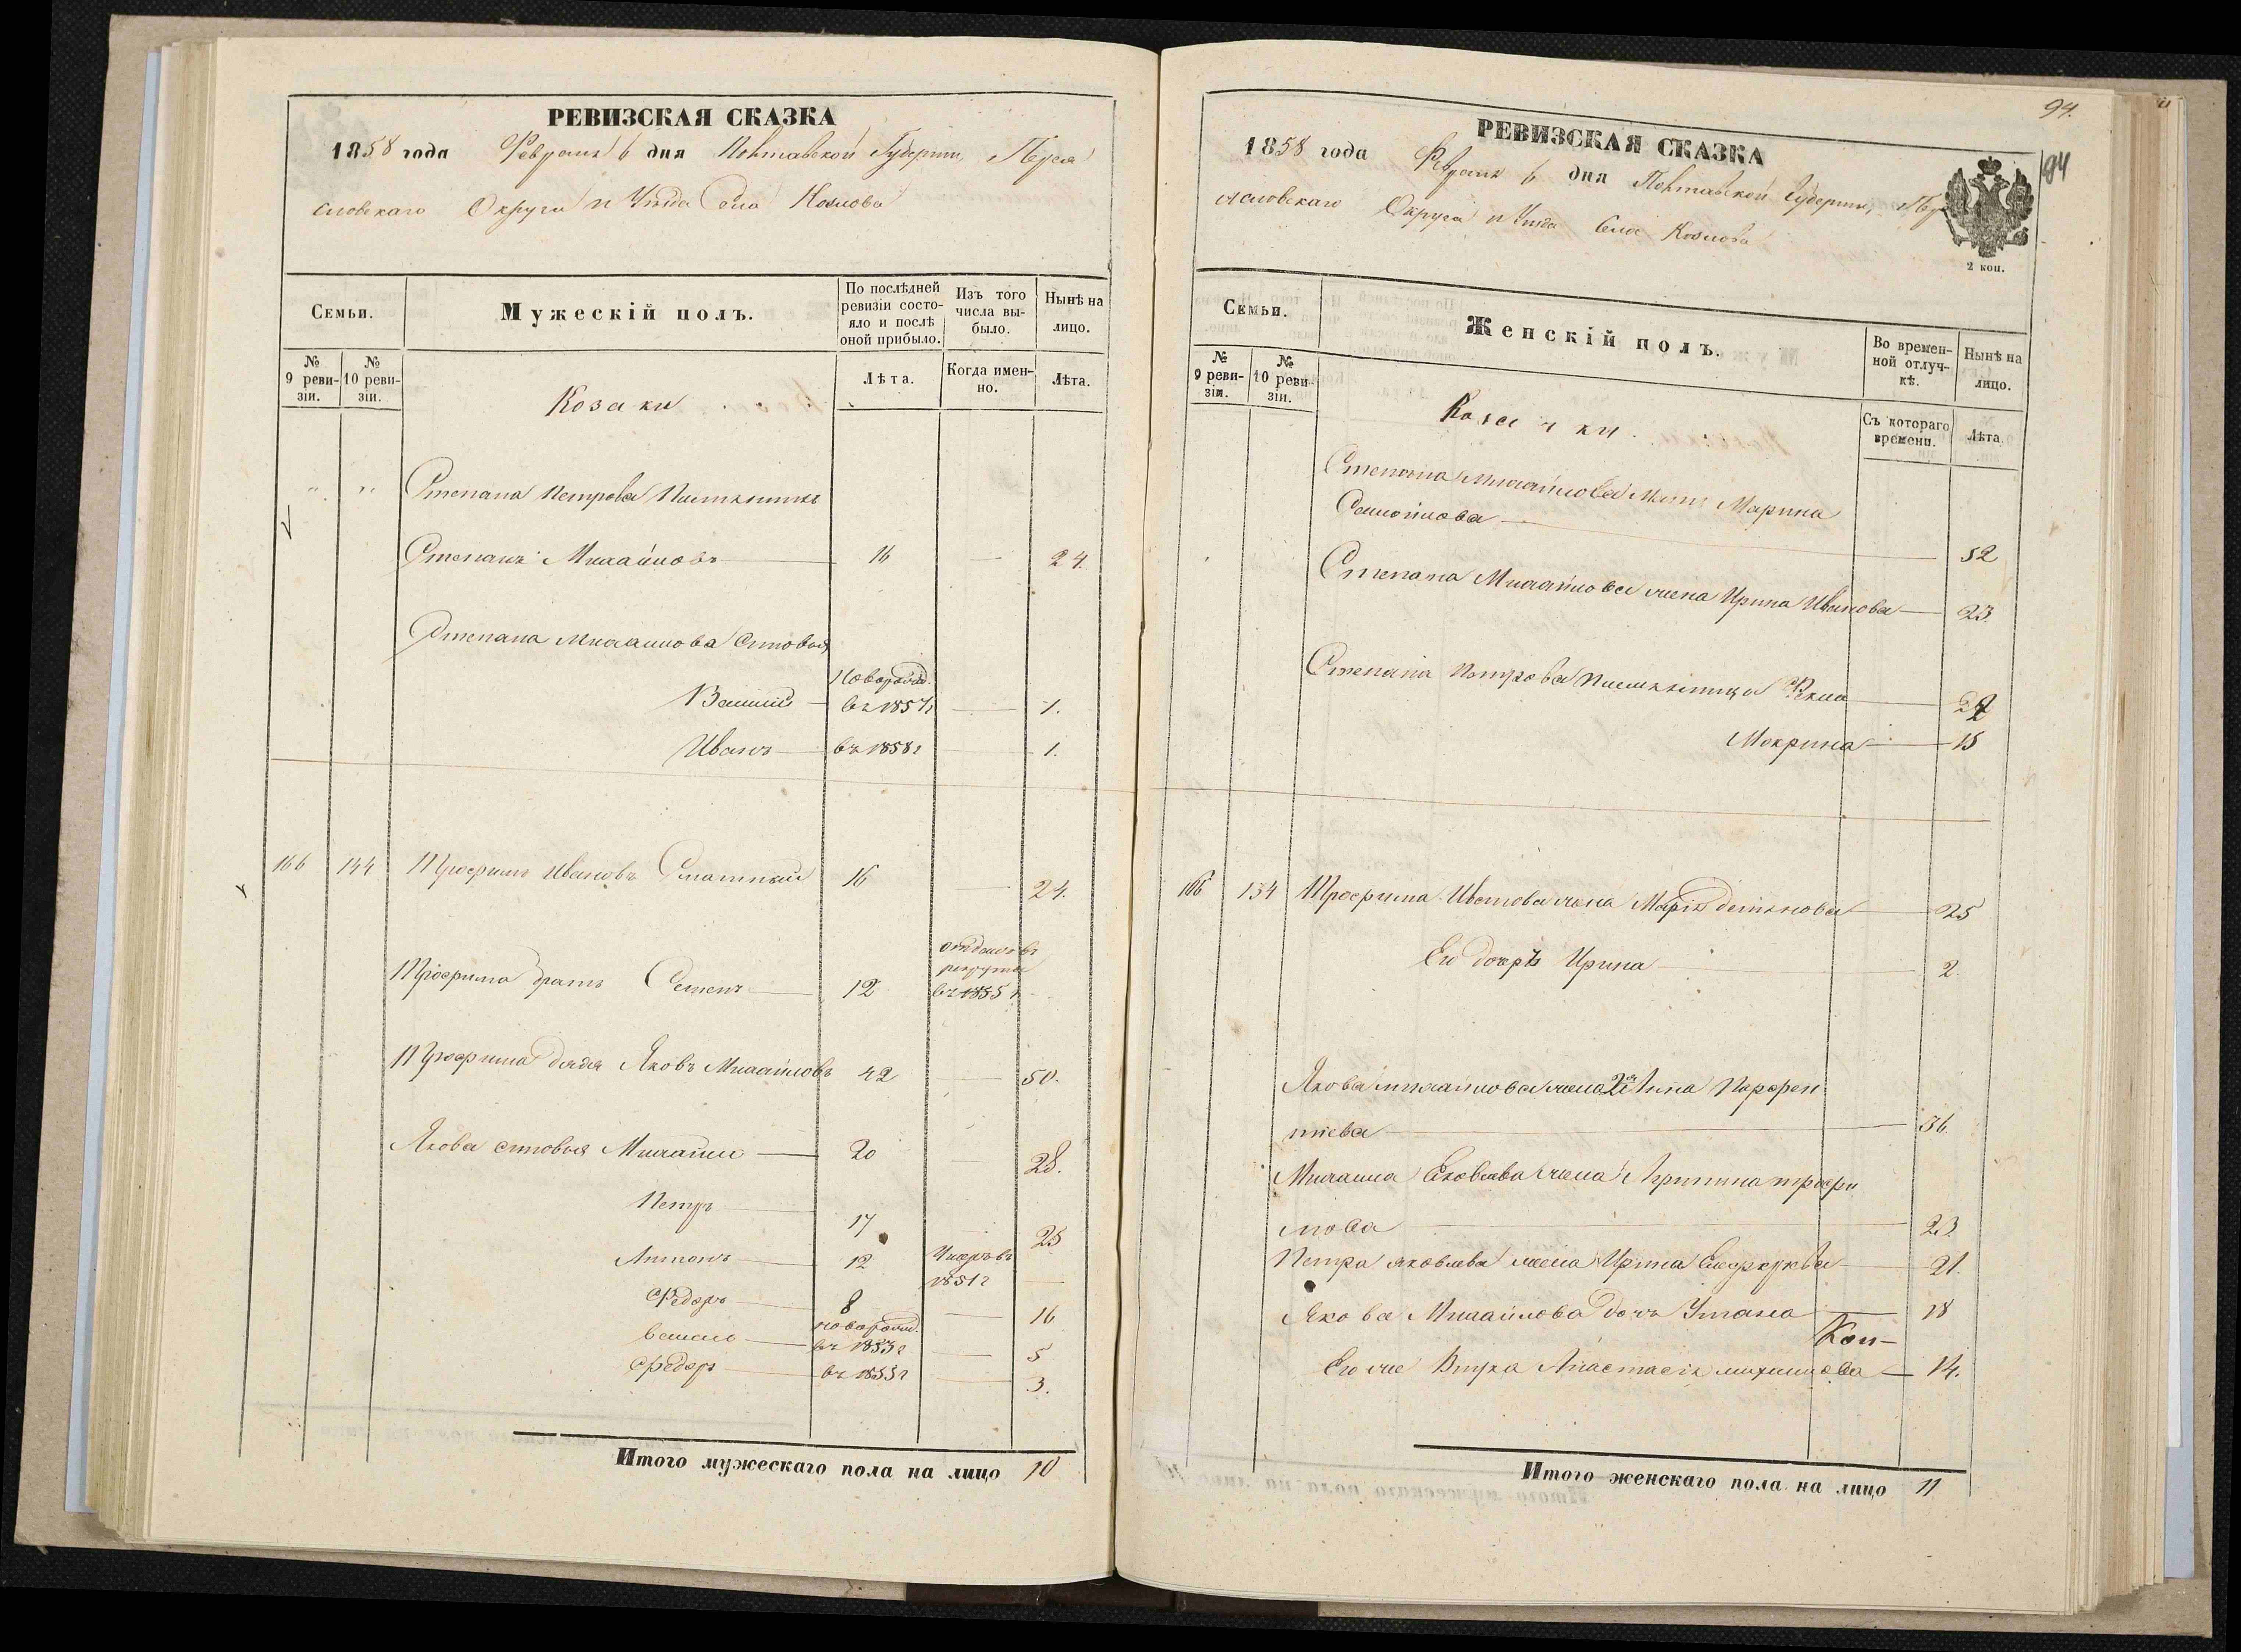 РЕВИЗСКАЯ СКАЗКА
1858 года Февраля 6 дня Полтавской Губернии, Перея
словскаго Округа и Уезда села Козлова
Семьи.
Мужескій полъ.
По послѣдней ревизіи состо-
яло и послѣ оной прибыло.
Изъ того числа вы-
было.
Нынѣ на лицо.
№ 9 реви-
зіи.
№ 10 реви-
зіи.
Лѣта.
Когда имен-
но.
Лѣта.
Козаки
Степана Петрова
Степанъ Михайловъ 16 — 24.
Степана Михайлова сыновья
Новорожд.
Василий въ 1857г — 1.
Иванъ въ 1858г 1.
166 144 Трофимъ Ивановъ 16 — 24.
отданъ въ
рекруты
Трофима братъ Семенъ 12 въ 1855г
Трофима дядя Яковъ Михайловъ 42 — 50.
Якова сыновья Михаилъ 20 28.
Петръ 17 25
Антонъ 12 Умеръ въ
1851г —
Федоръ 8 — 16
новорожд.
въ 1853г — 5
Федоръ въ 1855г — 3.
Итого мужескаго пола на лицо 10
94.
94
РЕВИЗСКАЯ СКАЗКА
1858 года Февраля 6 дня Полтавской Губернии, Пере
яславскаго Округа и Уезда Села Козлова
2 коп.
Семьи.
Женскій полъ.
Во времен-
ной отлуч-
кѣ.
Нынѣ на лицо.
№ 9 реви-
зіи.
№ 10 реви-
зіи.
Съ котораго времени.
Лѣта.
Козачки.
Степана Михайлова Мать Марина
Самойлова 52
Степана Михайлова жена Ирина Иванова 23
Степана Петрова Фекла
Мокрина 15
166 134 Трофима Иванова жена Марія 25
Его дочрь Ирина 2.
Якова михайлова жена 2я Анна Парфен
тіева 36.
Михаила Яковлева жена Агрипина трофи
мова 23
Петра яковлева жена Ирина 21.
Якова Михайлова дочь Уляна 18
Его же Внука Анастасія михаилова 14.
Итого женскаго пола на лицо 11